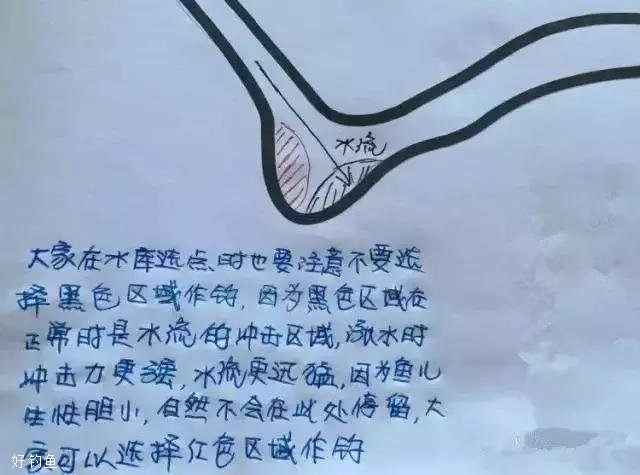 水流
大家在水库选点时也要注意不要选
择黑色区域作钓，因为黑色区域在
正常时是水流的冲击区域，涨水时
冲击力更强，水流更迅猛，因为鱼儿
生性胆小，自然不会在此处停留，大
家可以选择红色区域作钓
好钓鱼